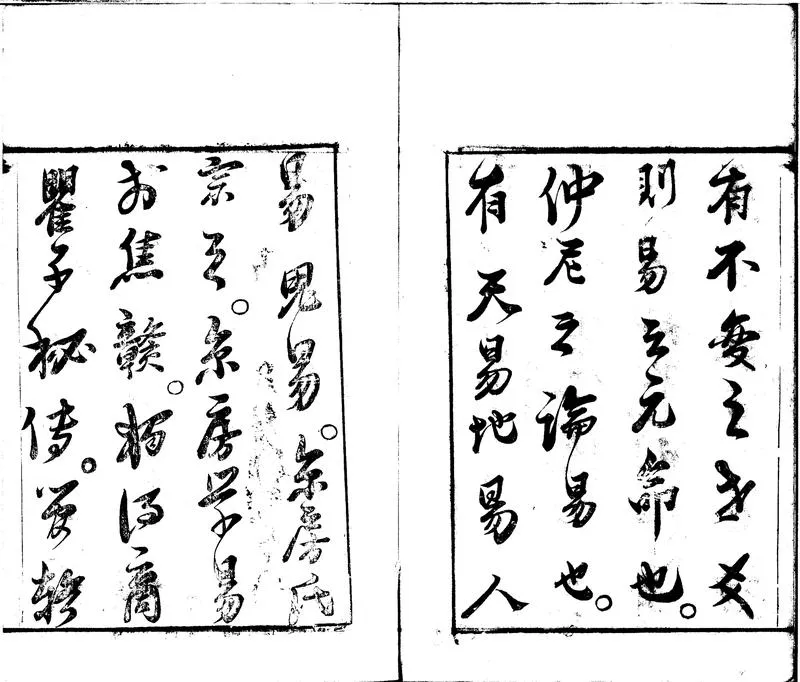 有不變之世爻
則易之元命也。
仲尼之論易也。
有天易地易人
易鬼易。京房氏
宗之。京房学易
於焦贛。獨得商
瞿子秘传。